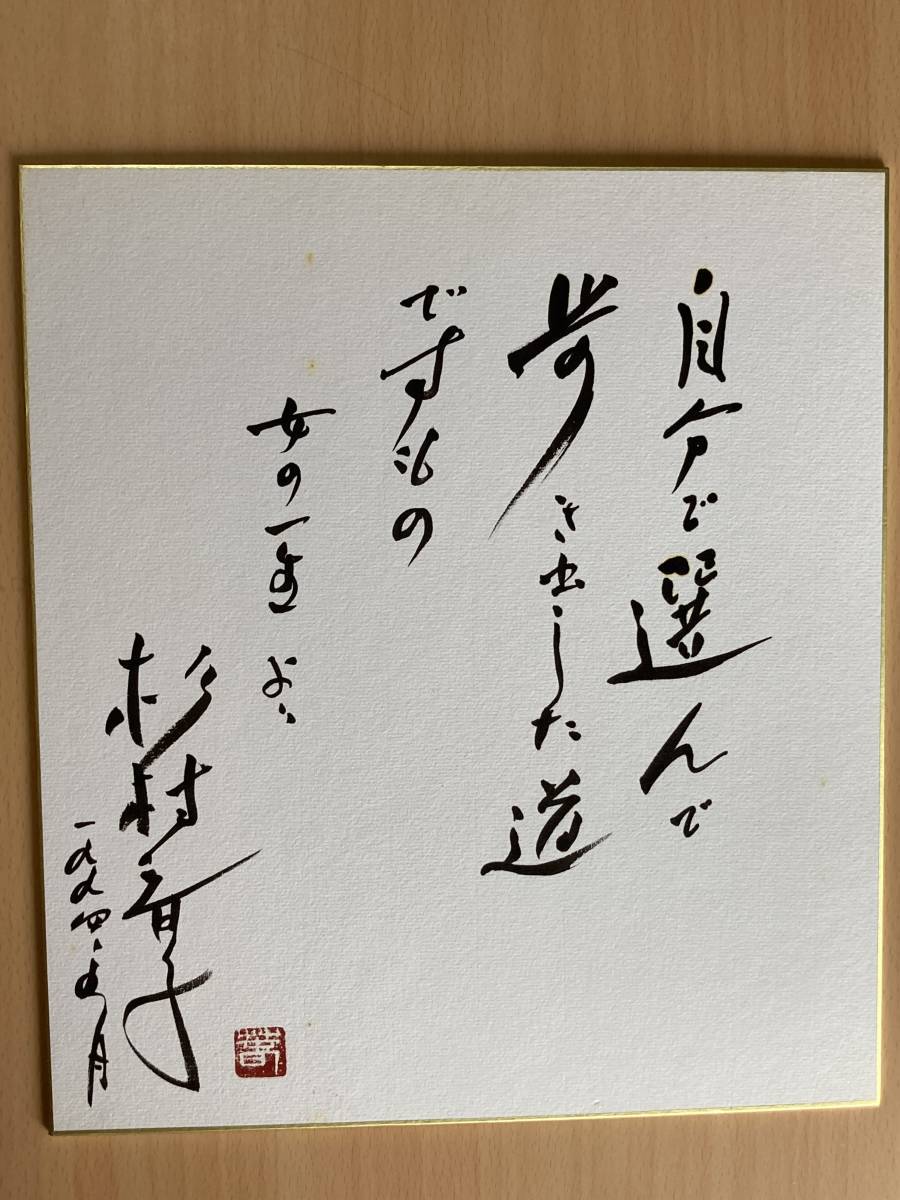 自分で選んで
歩き出した道
ですもの
女の一生より
杉村春子
一九九四、五月